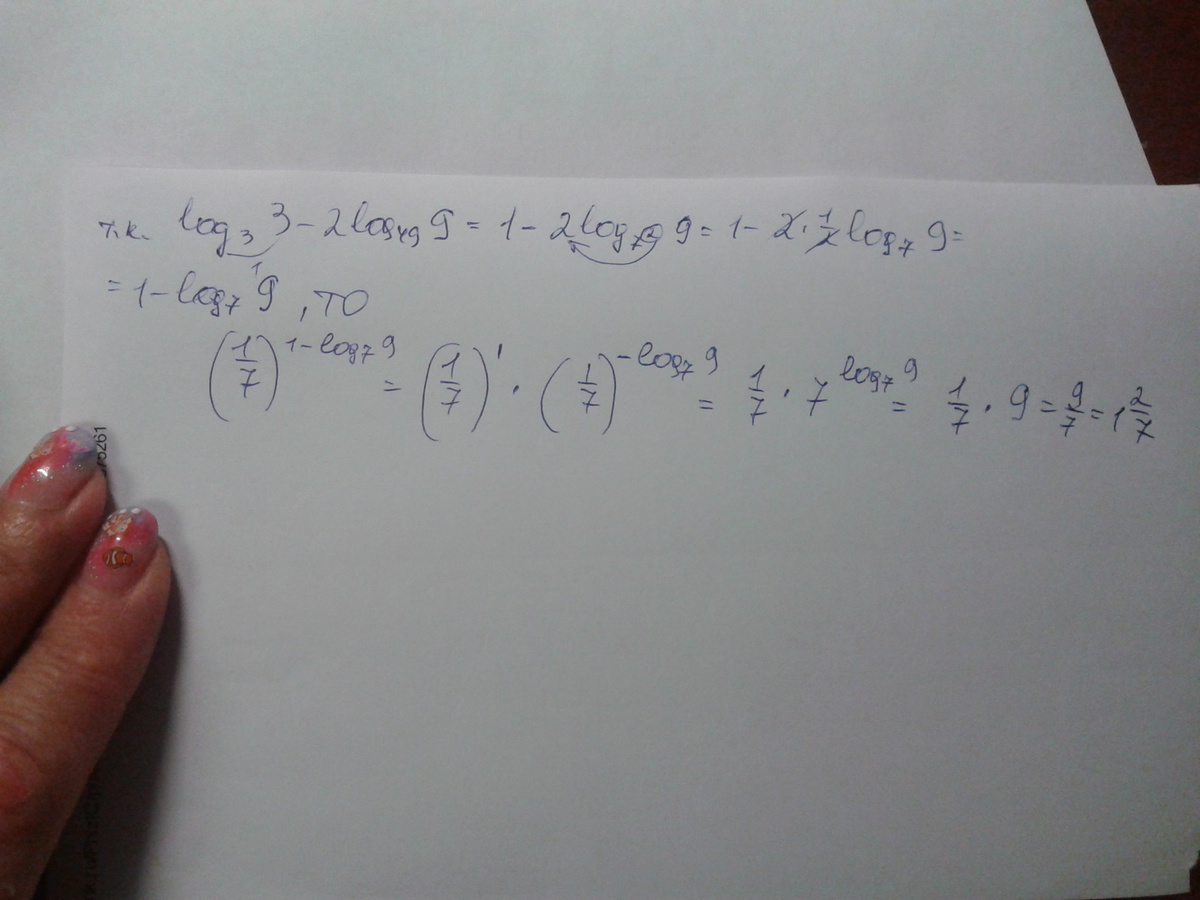 т.к. log₃ 3 - 2log₄₉ 9 = 1 - 2log₇² 9 = 1 - 2 · 1/2 log₇ 9 =
= 1 - log₇ 9¹, то
(1/7)^(1-log₇ 9) = (1/7)¹ · (1/7)^(-log₇ 9) = 1/7 · 7^(log₇ 9) = 1/7 · 9 = 9/7 = 1 2/7